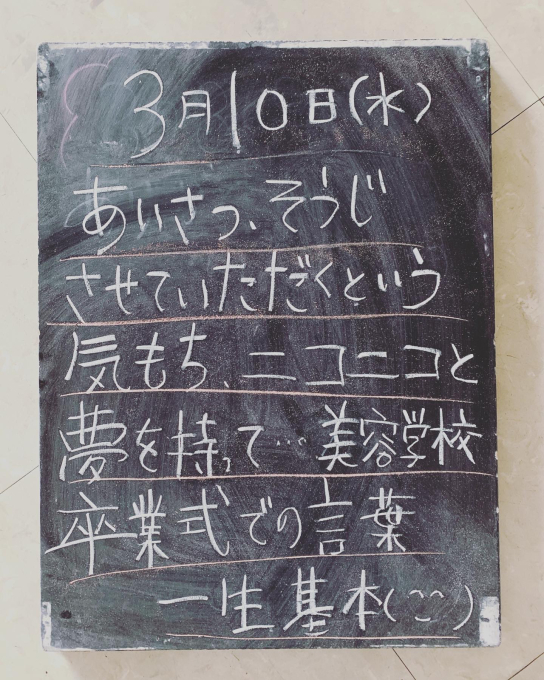 3月10日(水)
あいさつ、そうじ
させていただくという
気もち、ニコニコと
夢を持って…美容学校
卒業式での言葉
一生基本(^^)